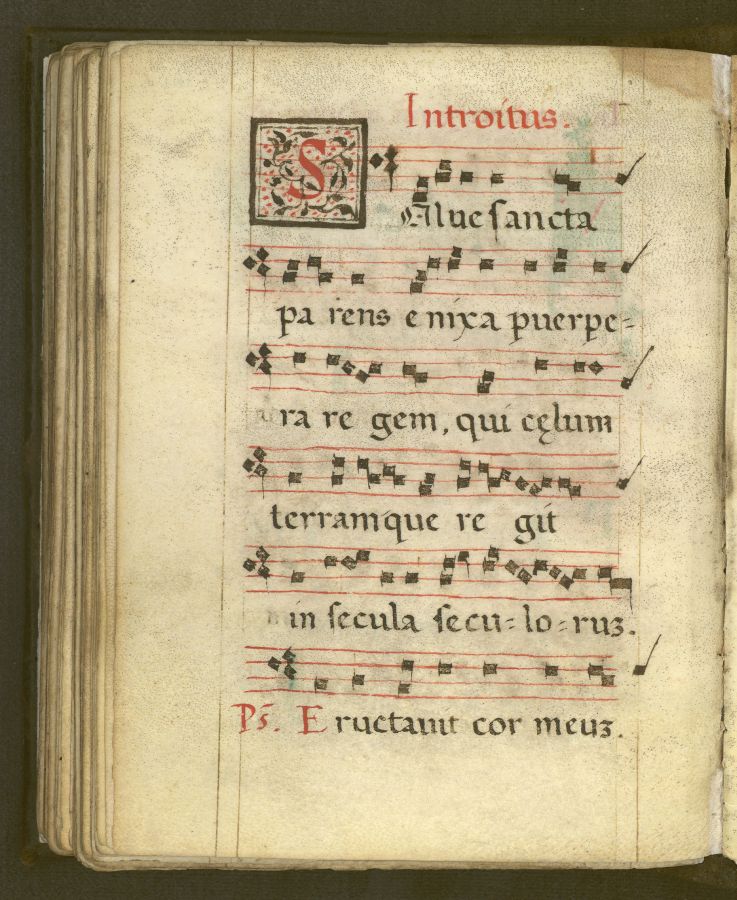 Introitus.
SAlue sancta
pa rens e nixa puerpe-
ra re gem, qui cęlum
terramque re git
in secula secu-lo-ruꝫ.
Ps. Eructauit cor meuꝫ.